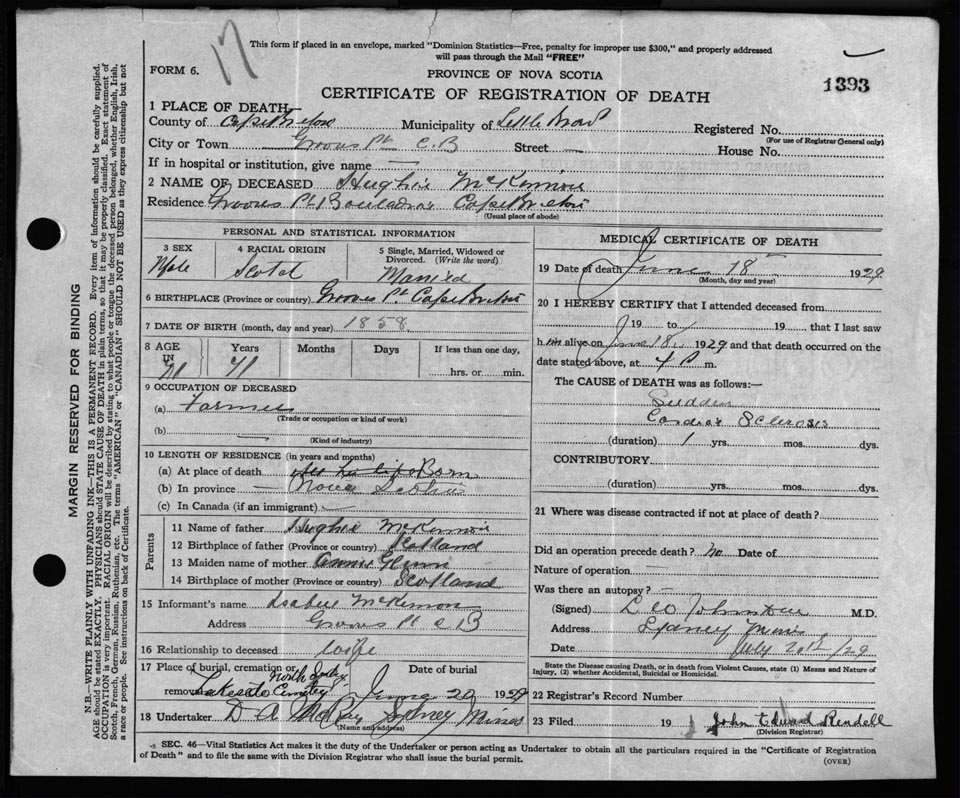 17
This form if placed in an envelope, marked "Dominion Statistics—Free, penalty for improper use $300," and properly addressed
will pass through the Mail "FREE"
FORM 6.
PROVINCE OF NOVA SCOTIA
1393
CERTIFICATE OF REGISTRATION OF DEATH
1 PLACE OF DEATH—
County of Cape Breton Municipality of Little Bras Registered No.
(For use of Registrar General only)
City or Town Groves Pt. C.B Street — House No.
If in hospital or institution, give name —
2 NAME OF DECEASED Hughie McKinnon
Residence Groves Pt. Boularderie Cape Breton
(Usual place of abode)
PERSONAL AND STATISTICAL INFORMATION
3 SEX 4 RACIAL ORIGIN 5 Single, Married, Widowed or
Divorced. (Write the word)
Male Scotch Married
6 BIRTHPLACE (Province or country) Groves Pt. Cape Breton
7 DATE OF BIRTH (month, day and year) 1858
8 AGE IN Years Months Days If less than one day,
71 71 hrs. or min.
9 OCCUPATION OF DECEASED
(a) Farmer
(Trade or occupation or kind of work)
(b)
(Kind of industry)
10 LENGTH OF RESIDENCE (in years and months)
(a) At place of death All his life Born
(b) In province — Nova Scotia
(c) In Canada (if an immigrant) —
Parents
11 Name of father Hughie McKinnon
12 Birthplace of father (Province or country) Scotland
13 Maiden name of mother Annie
14 Birthplace of mother (Province or country) Scotland
15 Informant's name Isabell McKinnon
Address Groves Pt C B
16 Relationship to deceased wife
17 Place of burial, cremation or removal North Sydney Lakeside Cemetery
Date of burial June 20 1929
18 Undertaker D A McKay Sydney Mines
(Name and address)
MEDICAL CERTIFICATE OF DEATH
19 Date of death June 18 1929
(Month, day and year)
20 I HEREBY CERTIFY that I attended deceased from
19 to 19 that I last saw
h im alive on June 18 1929 and that death occurred on the
date stated above, at 4 P m.
The CAUSE of DEATH was as follows:—
Sudden
Cardiac Sclerosis
(duration) 1 yrs. mos. dys.
CONTRIBUTORY
(duration) yrs. mos. dys.
21 Where was disease contracted if not at place of death?
Did an operation precede death? No Date of
Nature of operation —
Was there an autopsy? —
(Signed) Leo Johnstone M.D.
Address Sydney Mines
Date July 20th/29
State the Disease causing Death, or in death from Violent Causes, state (1) Means and Nature of
Injury, (2) whether Accidental, Suicidal or Homicidal.
22 Registrar's Record Number
23 Filed 19 John Edward Rendell
(Division Registrar)
SEC. 46—Vital Statistics Act makes it the duty of the Undertaker or person acting as Undertaker to obtain all the particulars required in the "Certificate of Registration
of Death" and to file the same with the Division Registrar who shall issue the burial permit.
(OVER)
MARGIN RESERVED FOR BINDING
N.B.—WRITE PLAINLY WITH UNFADING INK—THIS IS A PERMANENT RECORD. Every item of information should be carefully supplied.
AGE should be stated EXACTLY. PHYSICIANS should STATE CAUSE OF DEATH in plain terms, so that it may be properly classified. Exact statement of
OCCUPATION is very important. RACIAL ORIGIN will be described by stating to what people or tongue the deceased person belonged, whether English, Irish,
Scotch, French, German, Russian, Ruthenian, etc. The terms "AMERICAN" or "CANADIAN" SHOULD NOT BE USED as they express citizenship but not
a race or people. See instructions on back of Certificate.